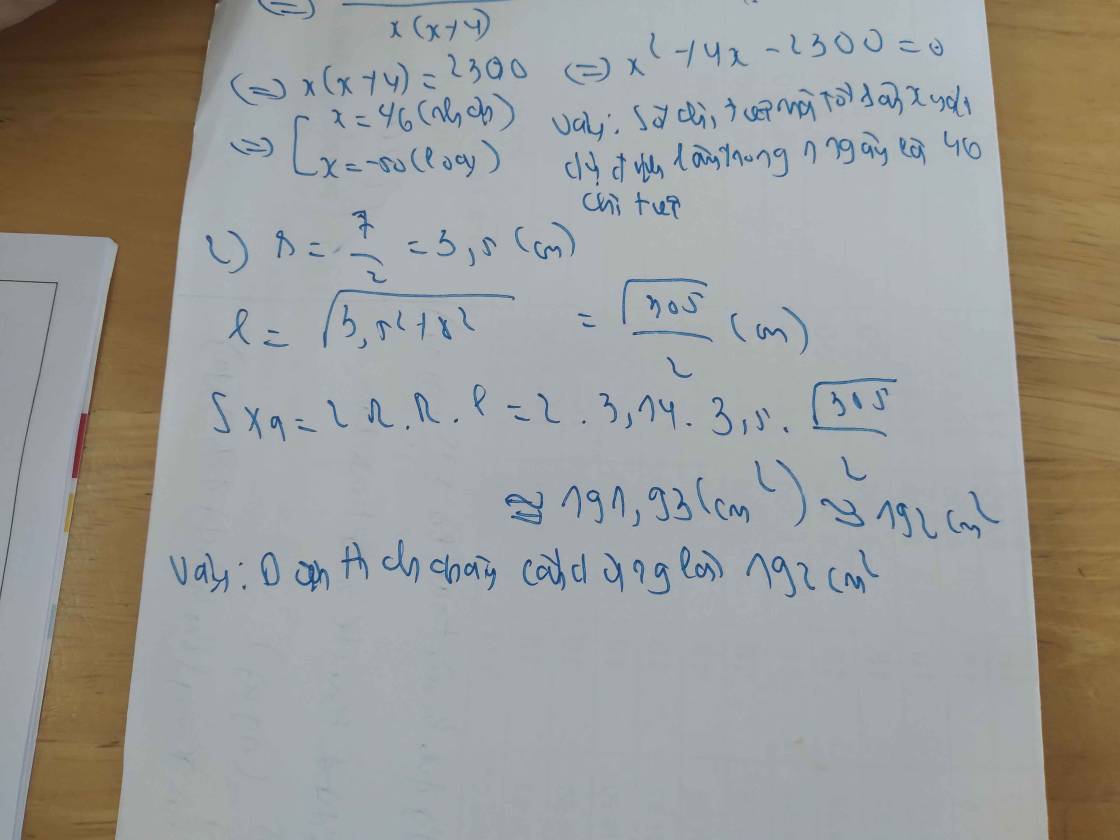 (=)
x(x+4)
(=) x(x+4) = 2300 (=) x² + 4x - 2300 = 0
(=) [ x = 46 (nhận)
x = -50 (loại)
Vậy: Số chi tiết mà tổ sản xuất
dự định làm trong 1 ngày là 46
chi tiết
2) R = 7/2 = 3,5 (cm)
l = √(3,5² + 8²) = √305/2 (cm)
Sxq = 2π.R.l = 2 . 3,14 . 3,5 . √305/2
≈ 191,93 (cm²) ≈ 192 cm²
Vậy: Diện tích cần dùng là 192 cm²